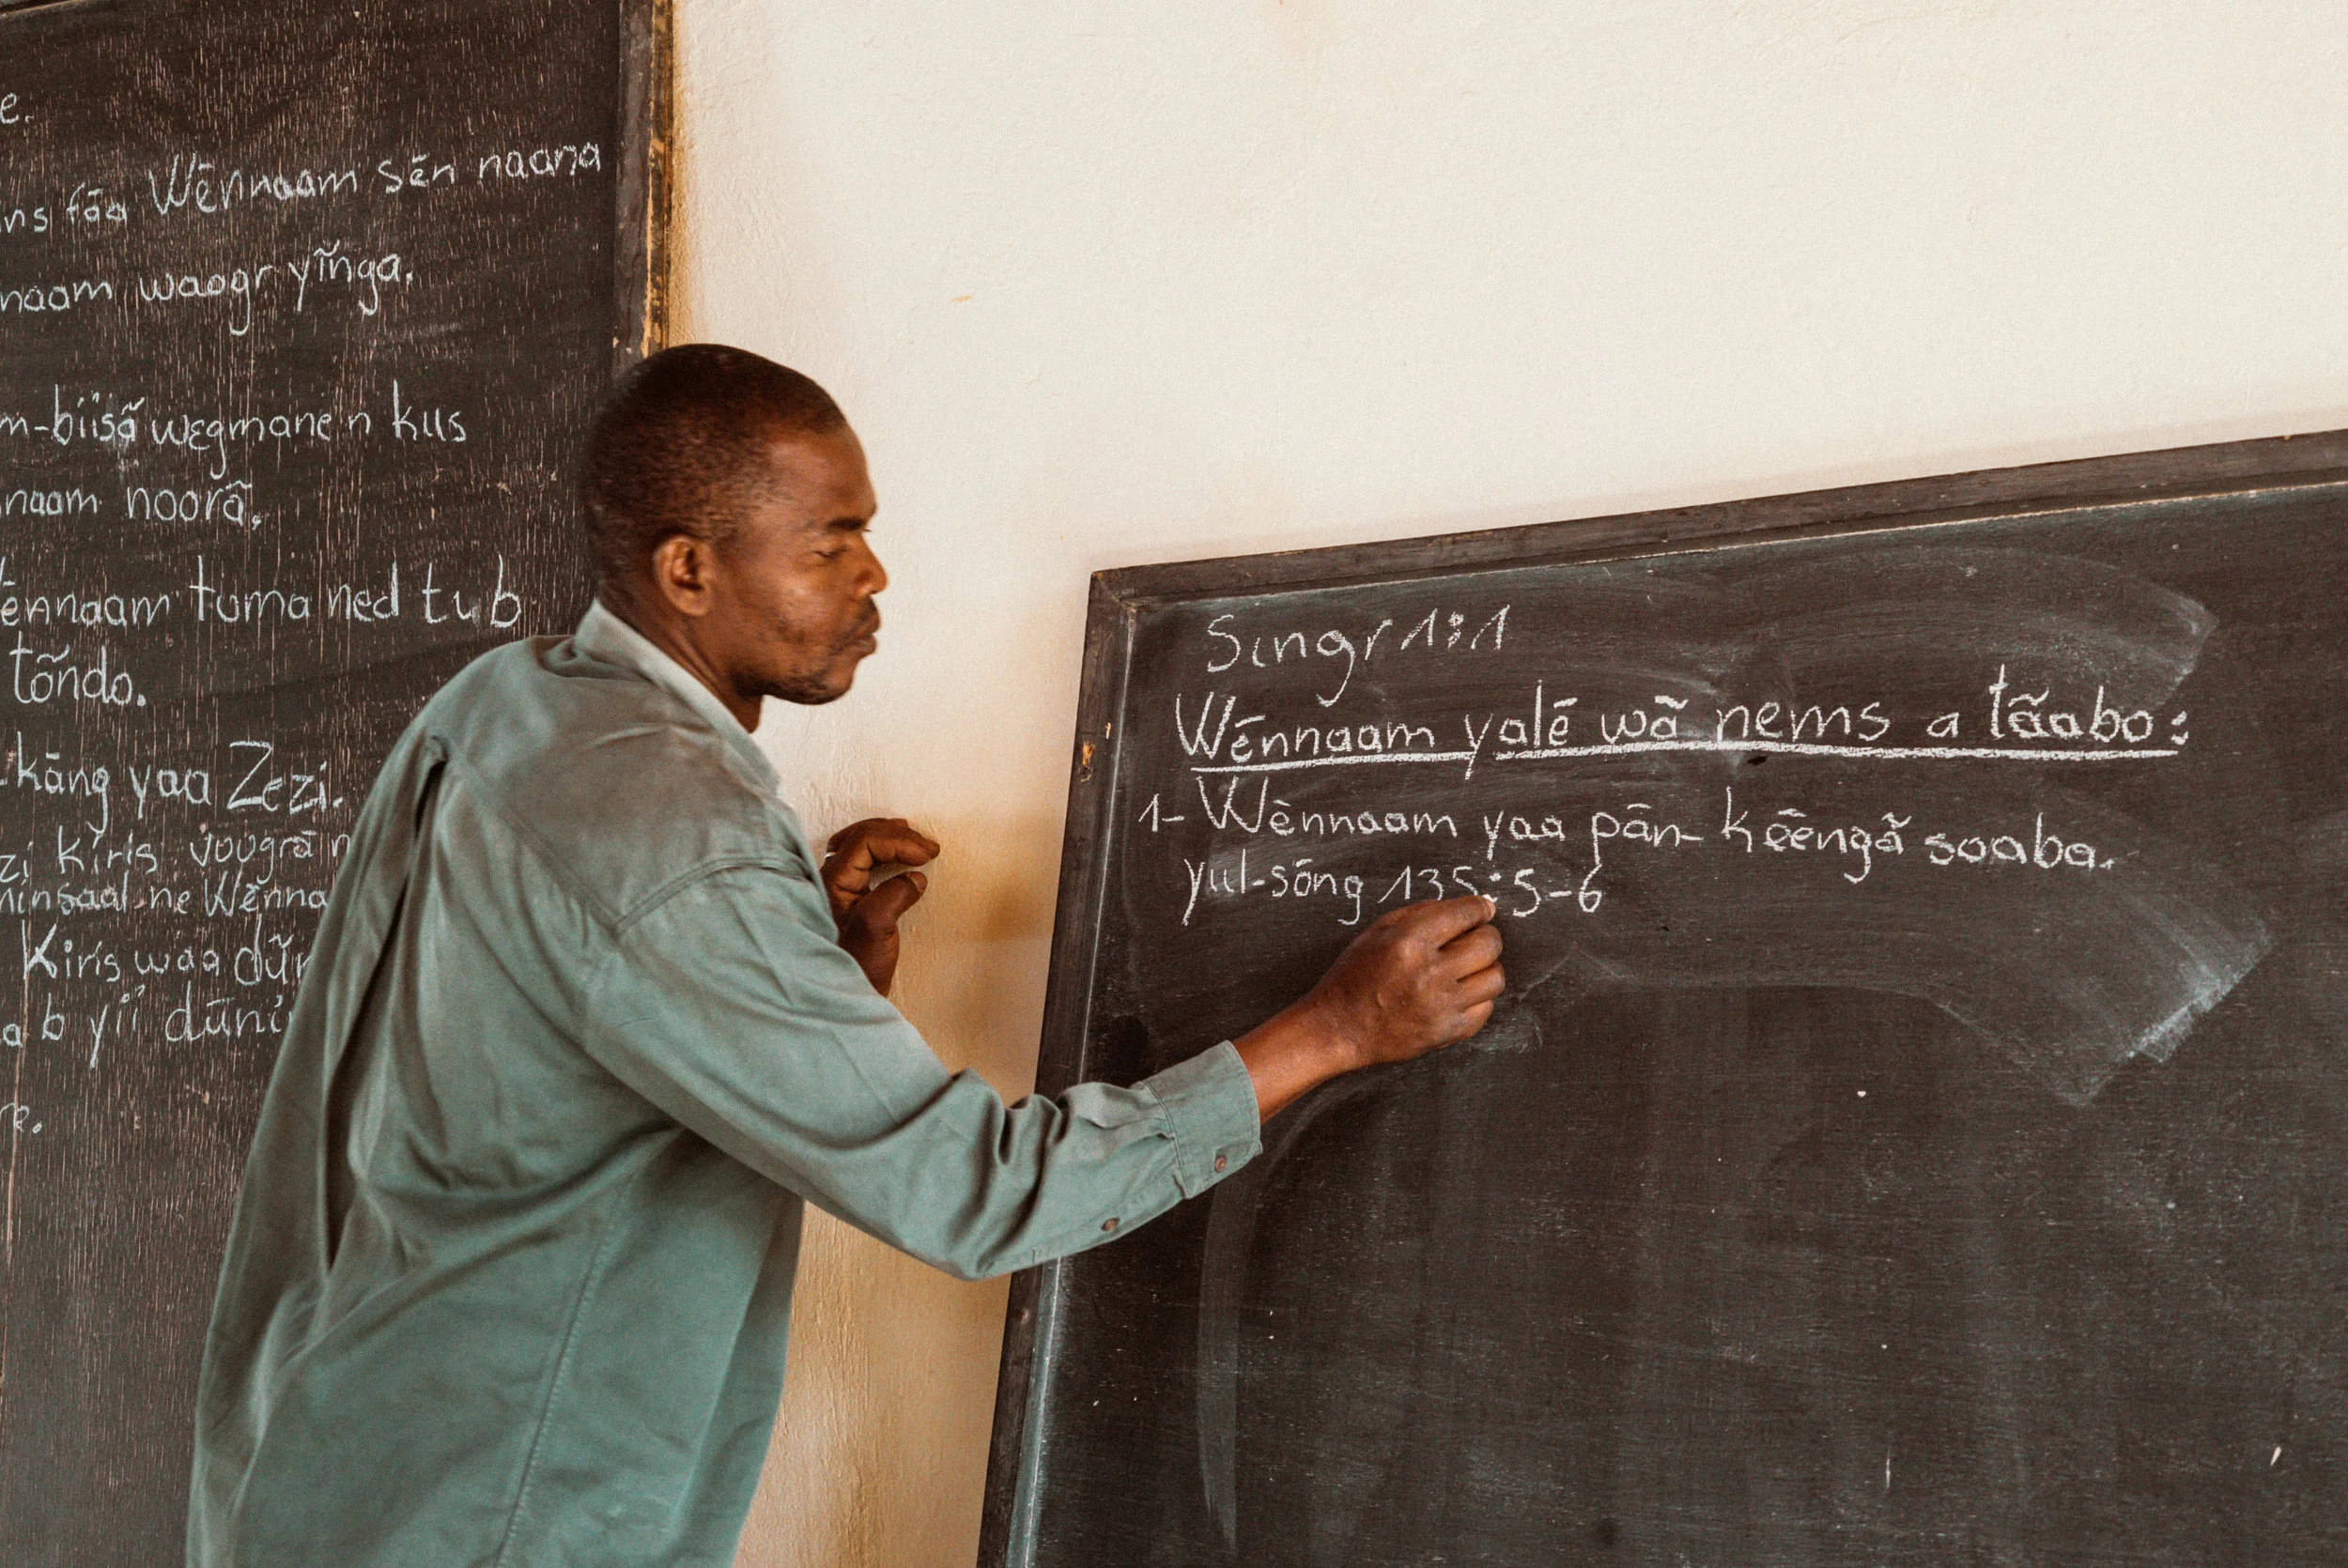 e.
ns fãa Wẽnnaam sẽn naana
naam waogr yĩnga.
m-biisã wegmane n kɩs
naam noorã.
ẽnnaam tʋma ned tʋb
tõndo.
-kãng yaa Zezi.
zi kiris vʋʋgrã n
ninsaal ne Wẽnna
Kiris waa dũn
a b yii dũni
re.
Sɩngr 1:1
Wẽnnaam yalẽ wã nems a tãabo:
1- Wẽnnaam yaa pãn-kẽẽngã soaba.
yɩɩl-sõng 135:5-6